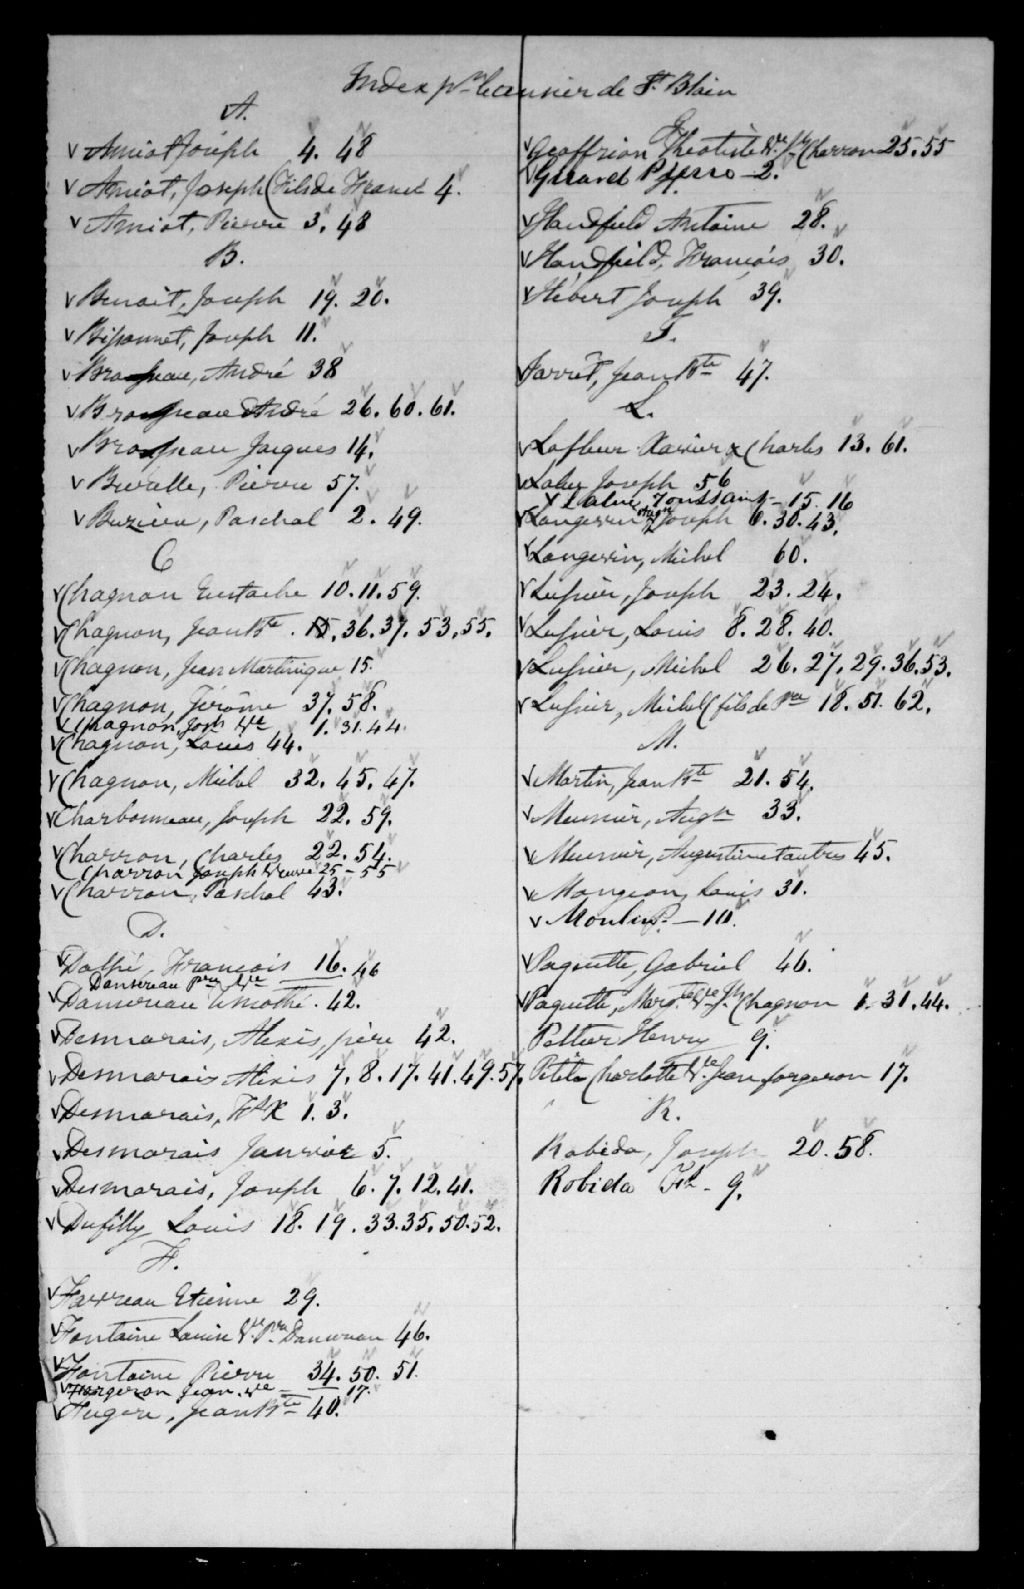 Index pr le censier de St Blain
A.
Amiot Joseph 4. 48
Amiot, Joseph (Fils de Franct 4.
Amiot, Pierre 3. 48
B.
Benoit, Joseph 19. 20.
Bissonnet, Joseph 11.
Brosseau, André 38
Brosseau André 26. 60. 61.
Brosseau Jacques 14.
Buvalle, Pierre 57.
Buzieu, Paschal 2. 49.
C
Chagnon Eustache 10. 11. 59.
Chagnon, Jean Bte 15, 36. 37. 53, 55.
Chagnon, Jean Martinique 15.
Chagnon, Jérôme 37. 58.
Chagnon, Josh Vve 1. 31. 44.
Chagnon, Louis 44.
Chagnon, Michel 32. 45. 47.
Charbonneau, Joseph 22. 59.
Charron, Charles 22. 54.
Charron Joseph Veuve 25 - 55
Charron, Paschal 43.
D.
Dalpé, François 16. 46
Dansereau Pre Vve
Dansereau Timothé. 42.
Desmarais, Alexis, père 42.
Desmarais Alexis 7. 8. 17. 41. 49. 57.
Desmarais, F. X 1. 3.
Desmarais Janvier 5.
Desmarais, Joseph 6. 7. 12. 41.
Dufilly Louis 18. 19. 33. 35. 50. 52.
F.
Favreau Etienne 29.
Fontaine Louise Vve Pre Dansereau 46.
Fontaine Pierre 34. 50. 51.
Forgeron Jean. Vve 17.
Fugère, Jean Bte 40.
G
Geoffrion Théotiste Vve Jh Charron 25. 55
Girard Pierre - 2.
Handfield Antoine 28.
Handfield, François 30.
Hébert Joseph 39.
J.
Jarret, Jean Bte 47.
L.
Lafleur Xavier & Charles 13. 61.
Lalue Joseph 56
Lalue, Toussaint - 15. 16
Langevin Joseph 6. 30. 43.
Langevin, Michel 60.
Lussier, Joseph 23. 24.
Lussier, Louis 8. 28. 40.
Lussier, Michel 26. 27. 29. 36. 53.
Lussier, Michel (fils de Pre 18. 51. 62.
M.
Martin, Jean Bte 21. 54.
Meunier, Augtn 33.
Meunier, Augustin et autres 45.
Mongeon, Louis 31.
Moulin - 10.
Paquette, Gabriel 46.
Paquette, Margte Vve Jh Chagnon 1. 31. 44.
Peltier Henry 9.
Petite Charlotte Vve Jean forgeron 17.
R.
Robida, Joseph 20. 58.
Robida Frs - 9.